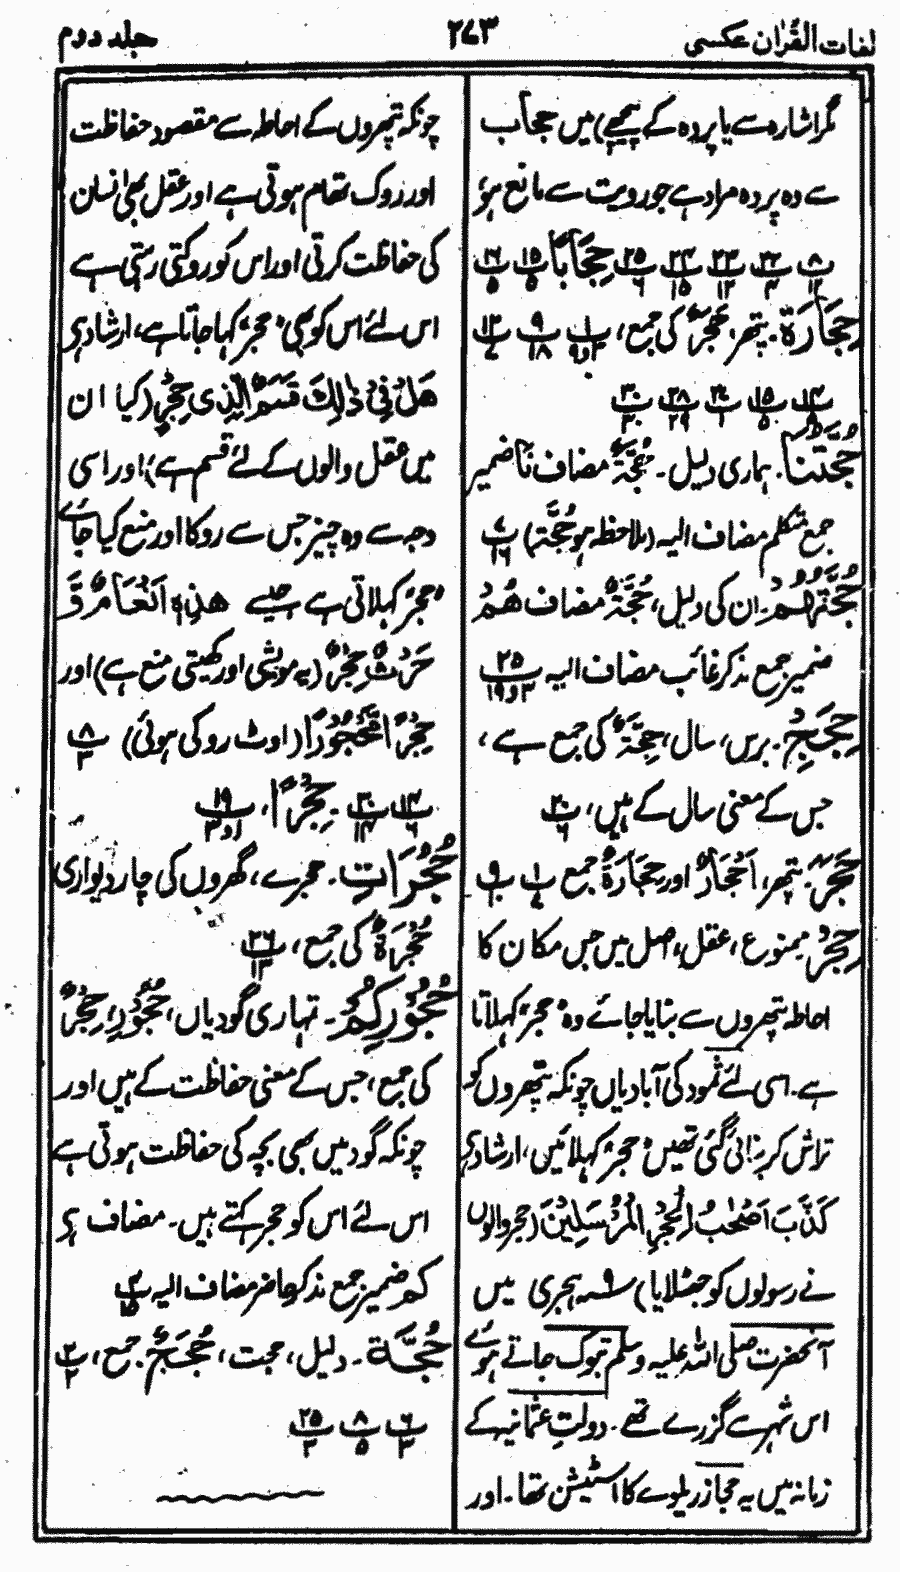 لغات القرآن عکسی
۲۷۳
جلد دوم
مگر اشارہ سے یا پردہ کے پیچھے) میں حجاب
سے وہ پردہ مراد ہے جو رویت سے مانع ہو،
۸/۱۲ ۲۲/۴ ۲۳/۱۲ ۲۴/۱۵ ۲۵/۶ حِجَابًا ۱۵/۵ ۱۶/۵
حِجَارَةٌ۔ پتھر، حَجَرٌ کی جمع، ۱/۳و۹ ۹/۱۸ ۱۲/۷
۱۴/۵ ۱۵/۵ ۲۷/۱ ۲۸/۲۹ ۳۰/۳۰
حُجَّتُنَا۔ ہماری دلیل۔ حُجَّةٌ مضاف نَا ضمیر
جمع متکلم مضاف الیہ (ملاحظہ ہو حُجَّة) ۷/۱۶
حُجَّتُهُمْ۔ ان کی دلیل، حُجَّةٌ مضاف هُمْ
ضمیر جمع مذکر غائب مضاف الیہ ۲۵/۳و۱۹
حِجَجٍ۔ برس، سال، حِجَّةٌ کی جمع ہے،
جس کے معنی سال کے ہیں، ۲۰/۶
حَجَرَ۔ پتھر، اَحْجَارٌ اور حِجَارَةٌ جمع ۱/۷ ۹/۱۰
حِجْرٌ۔ ممنوع، عقل، اصل میں جس مکان کا
احاطہ پتھروں سے بنایا جائے وہ "حجر" کہلاتا
ہے۔ اسی لئے ثمود کی آبادیاں چونکہ پتھروں کو
تراش کر بنائی گئی تھیں "حجر" کہلائیں، ارشاد ہے
كَذَّبَ اَصْحٰبُ الْحِجْرِ الْمُرْسَلِيْنَ (حجر والوں
نے رسولوں کو جھٹلایا) ۹ ہجری میں
آنحضرت صلی اللہ علیہ وسلم تبوک جاتے ہوئے
اس شہر سے گزرے تھے۔ دولتِ عثمانیہ کے
زمانہ میں یہ حجاز ریلوے کا اسٹیشن تھا۔ اور
چونکہ پتھروں کے احاطہ سے مقصود حفاظت
اور روک تھام ہوتی ہے اور عقل بھی انسان
کی حفاظت کرتی اور اس کو روکتی رہتی ہے
اس لئے اس کو بھی "حجر" کہا جاتا ہے، ارشاد ہے
هَلْ فِيْ ذٰلِكَ قَسَمٌ لِّذِيْ حِجْرٍ (کیا ان
میں عقل والوں کے لئے قسم ہے)؛ اور اسی
وجہ سے وہ چیز جس سے روکا اور منع کیا جائے
"حجر" کہلاتی ہے جیسے هٰذِهٖ اَنْعَامٌ وَّ
حَرْثٌ حِجْرٌ (یہ مویشی اور کھیتی منع ہے) اور
حِجْرًا مَّحْجُوْرًا (اوٹ روکی ہوئی) ۸/۳
۱۴/۶ ۳۰/۱۴۔ حِجْرًا، ۱۹/۱و۳
حُجُرَاتِ۔ حجرے، گھروں کی چار دیواری
حُجْرَةٌ کی جمع، ۲۶/۱۳
حُجُوْرِكُمْ۔ تمہاری گودیاں، حُجُوْر، حِجْرٌ
کی جمع، جس کے معنی حفاظت کے ہیں اور
چونکہ گود میں بھی بچہ کی حفاظت ہوتی ہے
اس لئے اس کو حجر کہتے ہیں۔ مضاف ہے
کم ضمیر جمع مذکر حاضر مضاف الیہ ۴/۱۵
حُجَّة۔ دلیل، حجت، حُجَجٌ جمع، ۲/۲
۶/۳ ۸/۵ ۲۵/۳